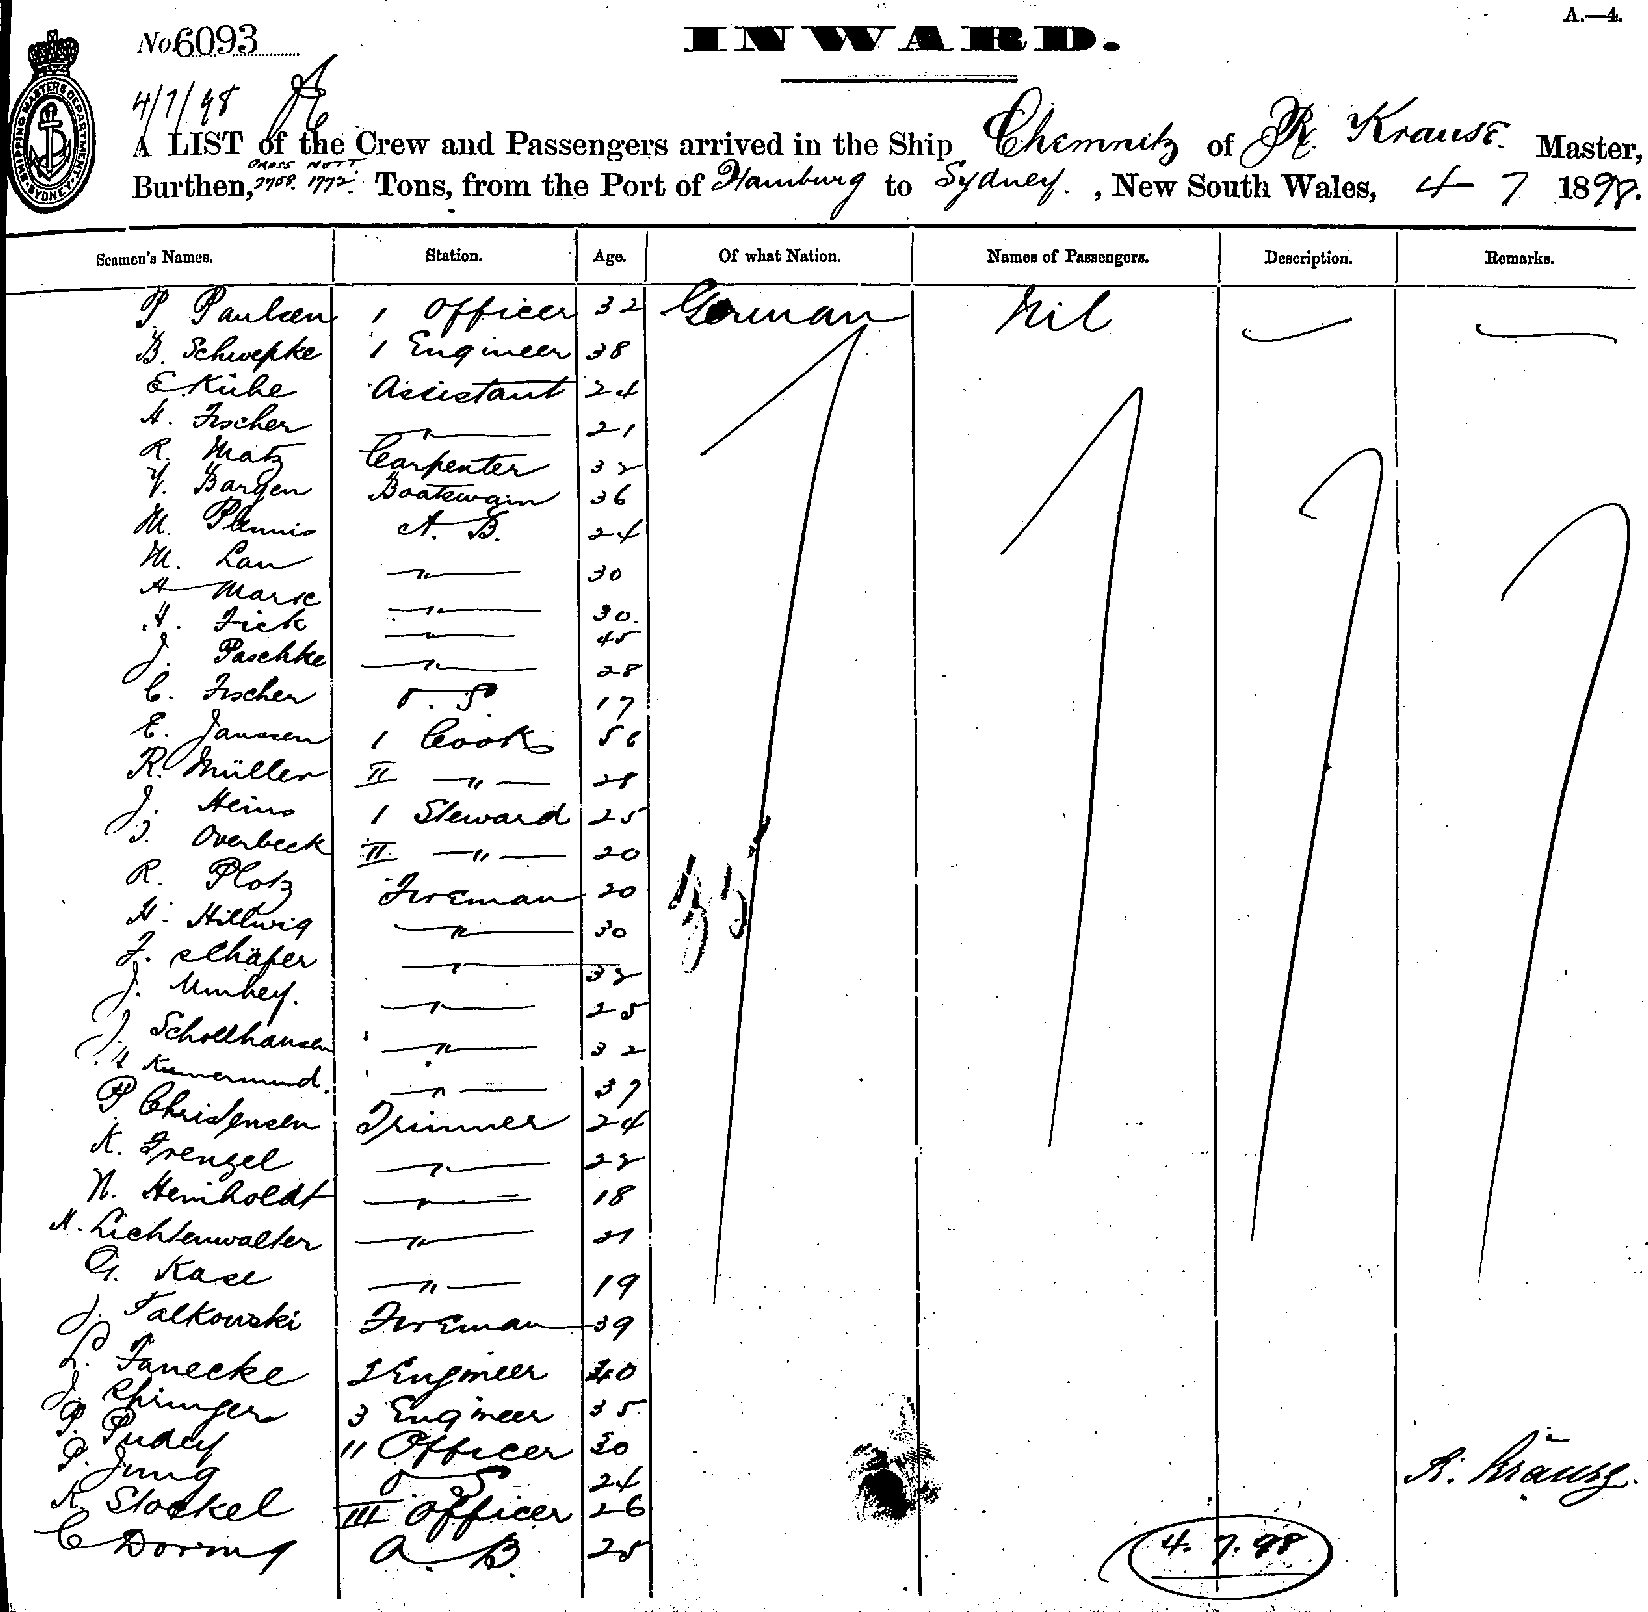 A.—4.
No 6093
INWARD.
SHIPPING MASTERS DEPARTMENT SYDNEY
4/7/98
A LIST of the Crew and Passengers arrived in the Ship Chemnitz of R. Krause. Master,
GROSS NETT
Burthen, 2758. 1772. Tons, from the Port of Hamburg to Sydney. , New South Wales, 4 7 1898.
Seamen's Names. Station. Age. Of what Nation. Names of Passengers. Description. Remarks.
P. Paulsen 1 Officer 32 German Nil
B. Schwepke 1 Engineer 38
E Kühe Assistant 24
A. Fischer " 21
R. Matz Carpenter 32
Bargen Boatswain 36
M. A. B. 24
M. Lau " 30
A " 30.
H. Fick " 45
J. Paschke " 28
C. Fischer O. S 17
E. Janssen 1 Cook 56
R. Müller II " 28
J. Heins 1 Steward 25
Overbeck II " 20
R. Plotz Fireman 20
H. Hillwig " 30
F. Schäfer " 32
J. " 25
J. Schollhausen " 32
" 37
P Christensen Trimmer 24
K. Frenzel " 22
N. Heinholdt " 18
H. Lichtenwalter " 21
G. Kase " 19
J. Falkowski Fireman 39
L. Fanecke 2 Engineer 40
J. Springer 3 Engineer 35
P. 11 Officer 30
P. Jung O S 24
K. Stockel III Officer 26
C Doring A. B. 25
R. Krause.
4. 7. 98